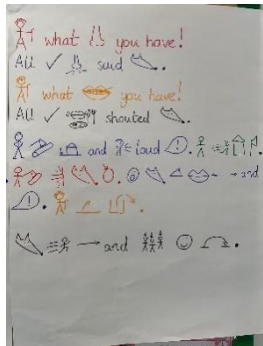 what you have!
All said .
what you have!
All shouted .
and loud .
. . and
.
and .